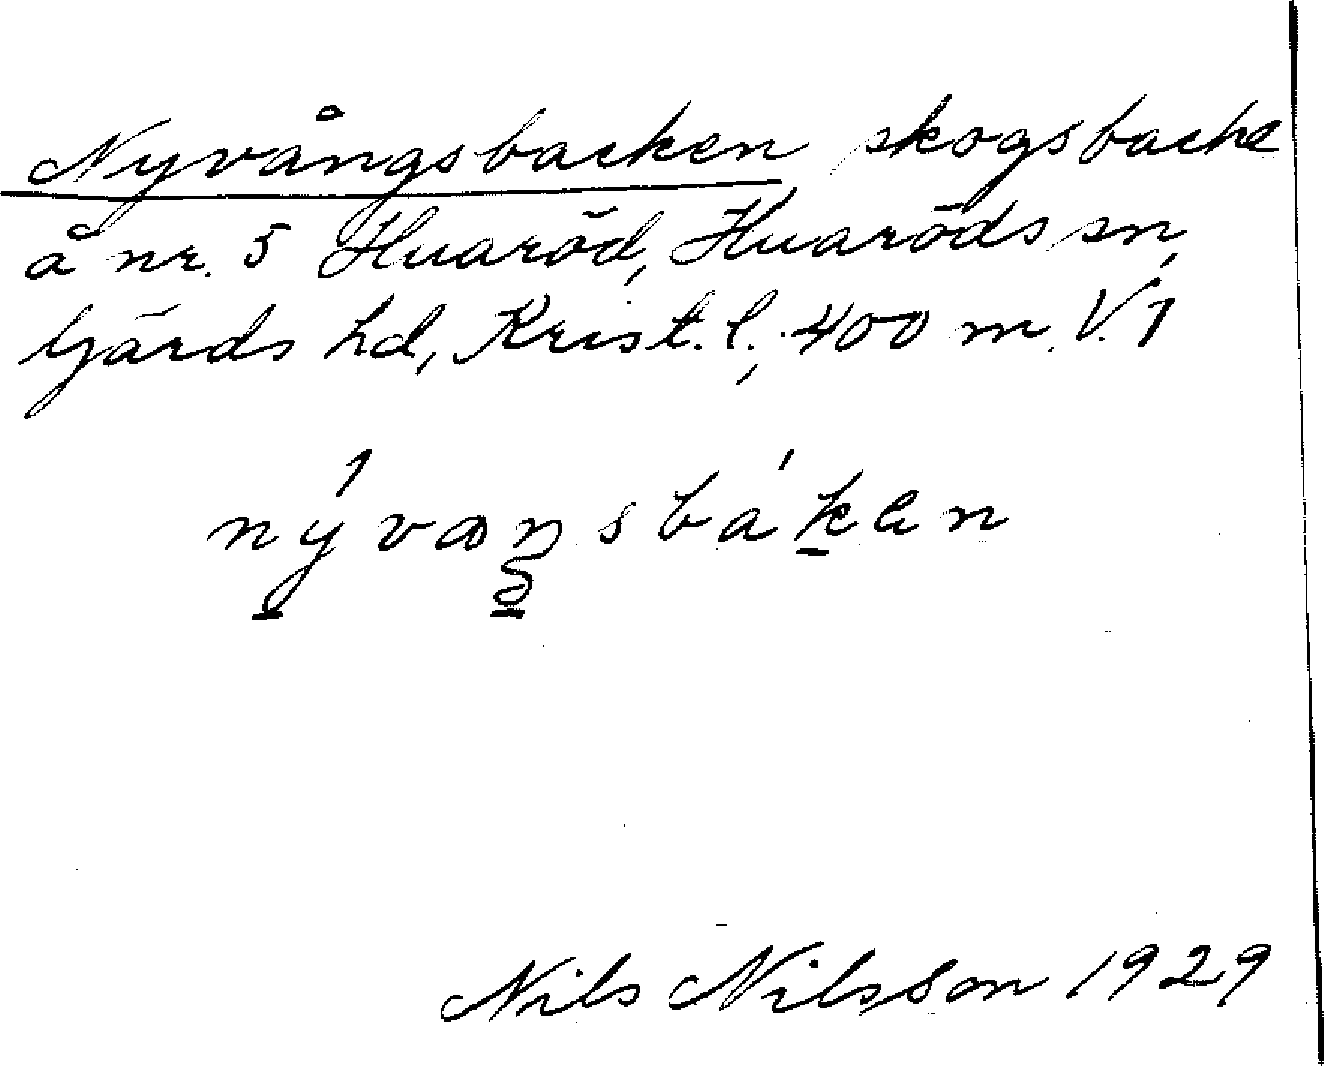 Nyvångsbacken skogsbacke
å nr. 5 Huaröd, Huaröds sn,
Gärds hd, Krist. l., 400 m. V. 1
Nils Nilsson 1929